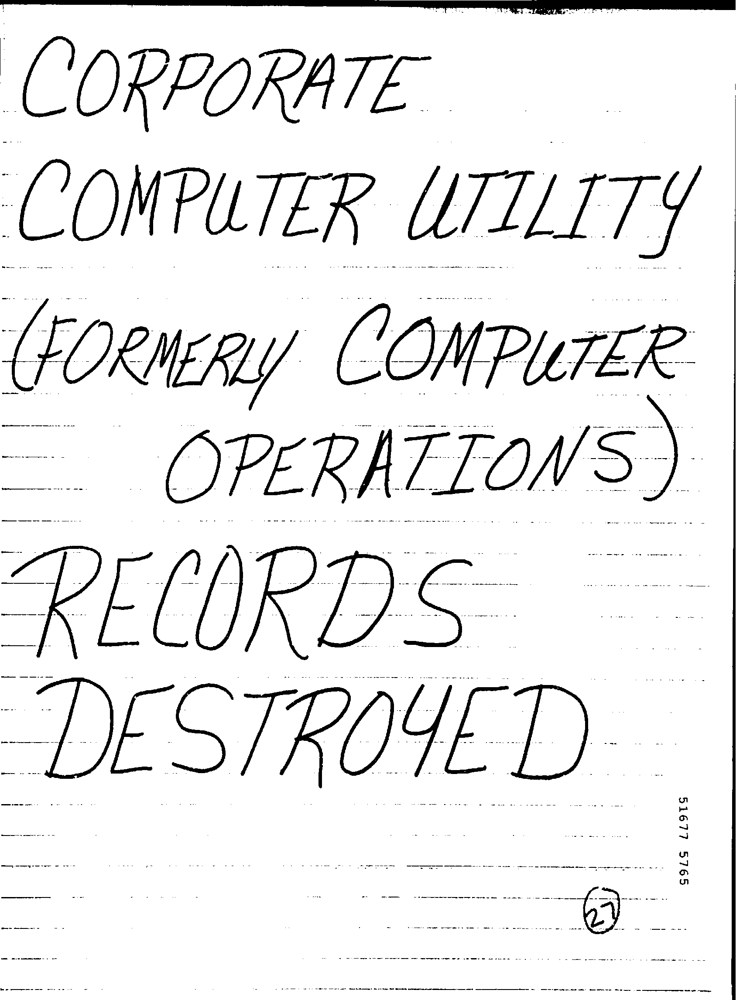 CORPORATE
COMPUTER UTILITY
(FORMERLY COMPUTER
OPERATIONS)
RECORDS
DESTROYED
51677 5765
27